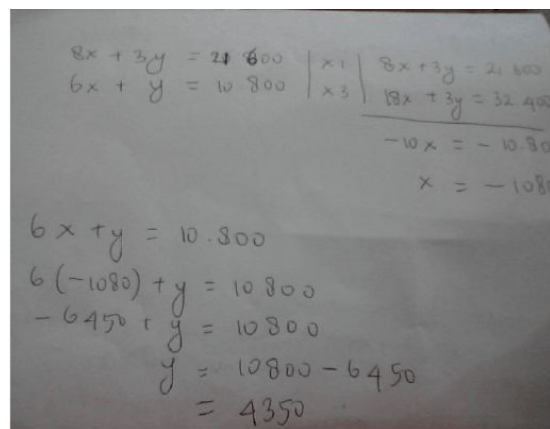 8x + 3y = 21 600 | x 1 | 8x + 3y = 21.600
6x + y = 10.800 | x 3 | 18x + 3y = 32.400
-10x = - 10.80
x = - 1080
6x + y = 10.800
6(-1080) + y = 10800
- 6450 + y = 10800
y = 10800 - 6450
= 4350